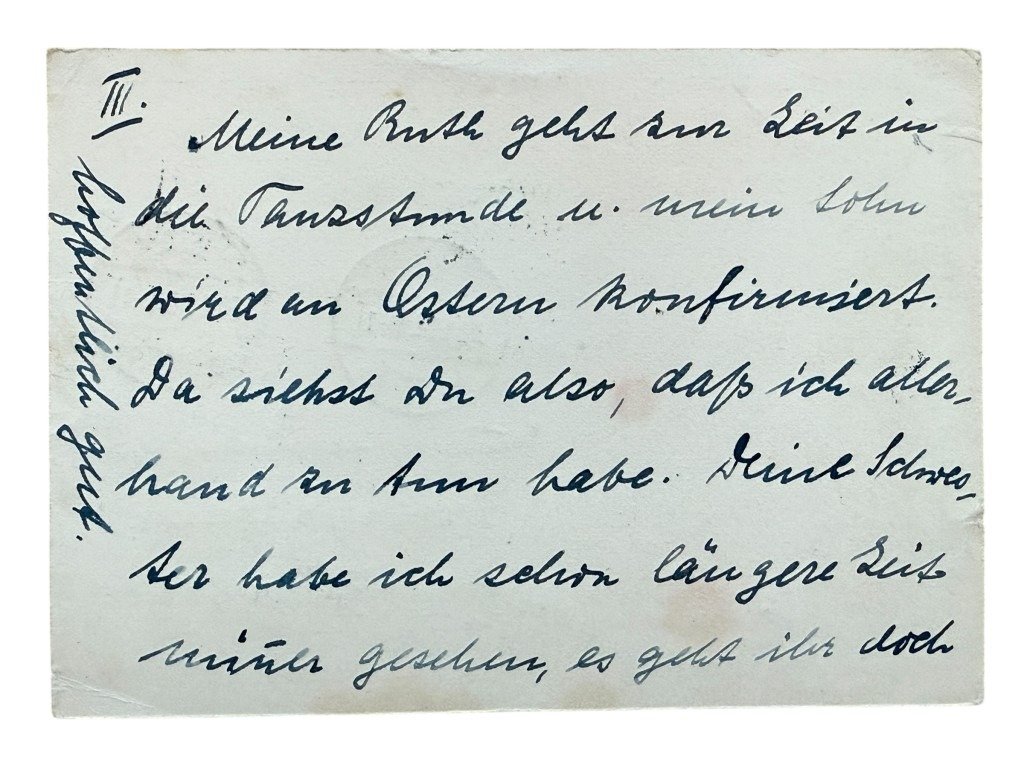 III.
Meine Ruth geht zur Zeit in
die Tanzstunde u. mein Sohn
wird an Ostern konfirmiert.
Da siehst Du also, daß ich aller-
hand zu tun habe. Deine Schwes-
ter habe ich schon längere Zeit
nim̅er gesehen, es geht ihr doch
hoffentlich gut.